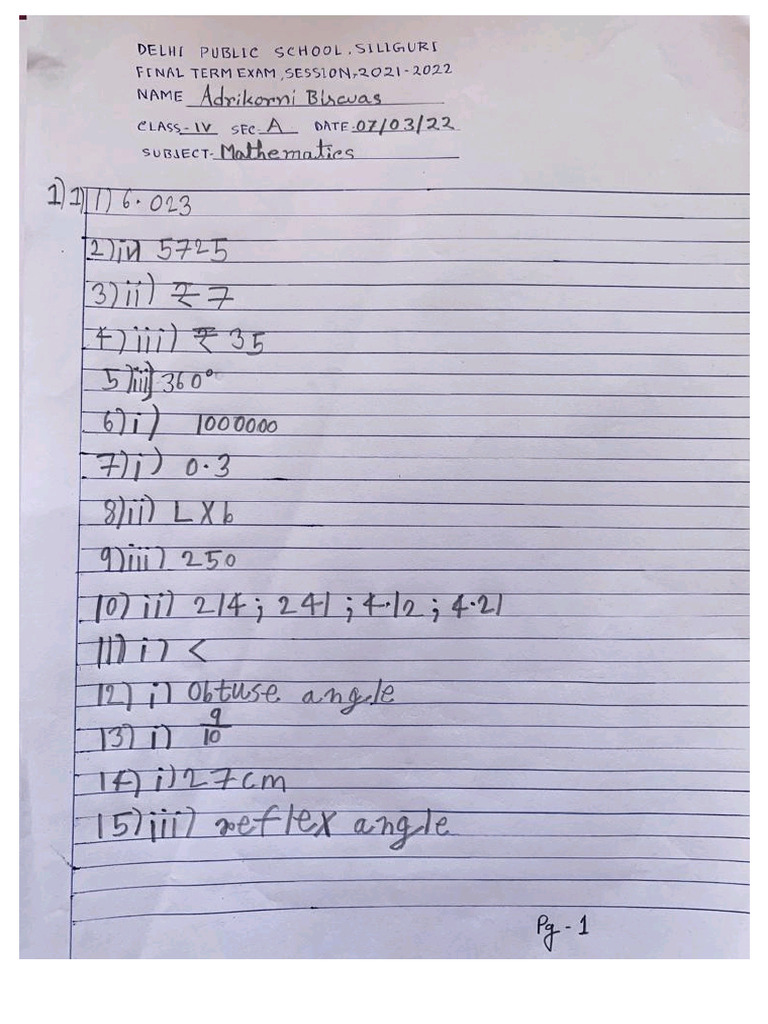 DELHI PUBLIC SCHOOL, SILIGURI
FINAL TERM EXAM, SESSION-2021-2022
NAME Adrikorni Biswas
CLASS-IV SEC-A DATE-07/03/22
SUBJECT-Mathematics
1)1)i) 6.023
2)iv) 5725
3)ii) ₹7
4)iii) ₹35
5)iii) 360°
6)i) 1000000
7)i) 0.3
8)ii) L X b
9)iii) 250
10) ii) 214; 241; 4.12; 4.21
11) i) <
12) i) Obtuse angle
13) i) 9/10
14) i) 27cm
15) iii) reflex angle
Pg-1